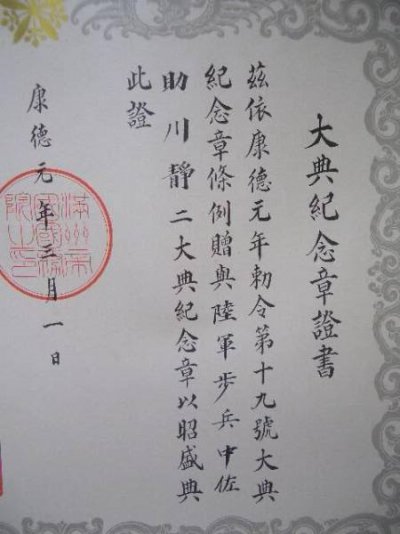 大典紀念章證書
茲依康德元年勅令第十九號大典
紀念章條例贈與陸軍步兵中佐
助川靜二大典紀念章以昭盛典
此證
康德元年三月一日
滿洲帝
國國務
院之印